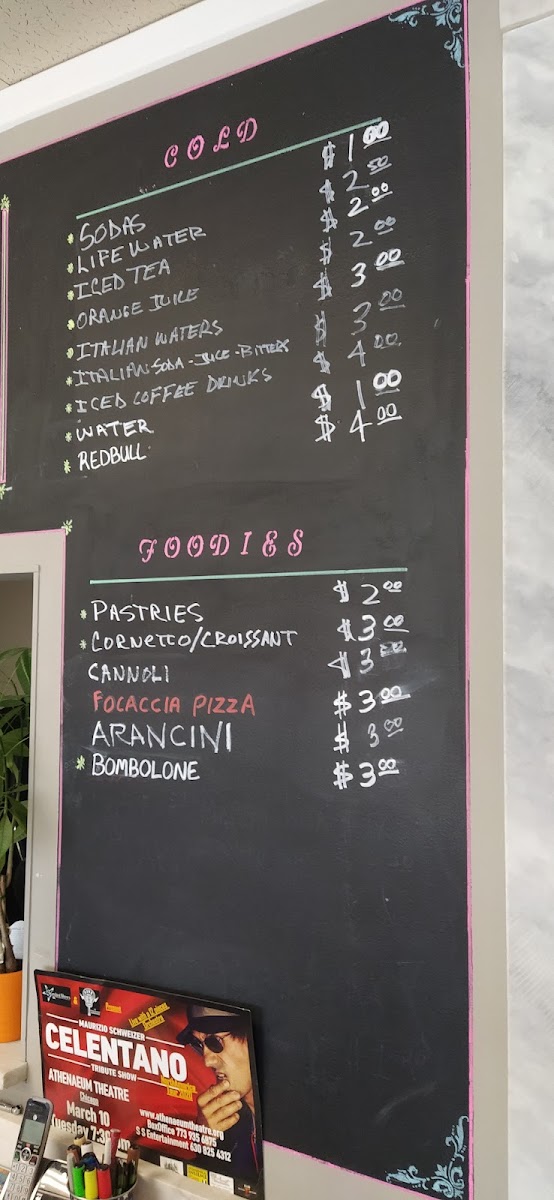 COLD
* SODAS $1.00
* LIFE WATER $2.50
* ICED TEA $2.00
* ORANGE JUICE $2.00
* ITALIAN WATERS $3.00
* ITALIAN SODA-JUICE-BITTERS $3.00
* ICED COFFEE DRINKS $4.00
* WATER $1.00
* REDBULL $4.00
FOODIES
* PASTRIES $2.00
* CORNETTO/CROISSANT $3.00
CANNOLI $3.00
FOCACCIA PIZZA $3.00
ARANCINI $3.00
* BOMBOLONE $3.00
Present
Live with a 12 pieces
Orchestra
MAURIZIO SCHWEIZER
CELENTANO
TRIBUTE SHOW
ATHENAEUM THEATRE
Chicago
March 10
Tuesday 7:30
www.athenaeumtheatre.org
BoxOffice 773 935 6875
S S Entertainment 630 825 4312